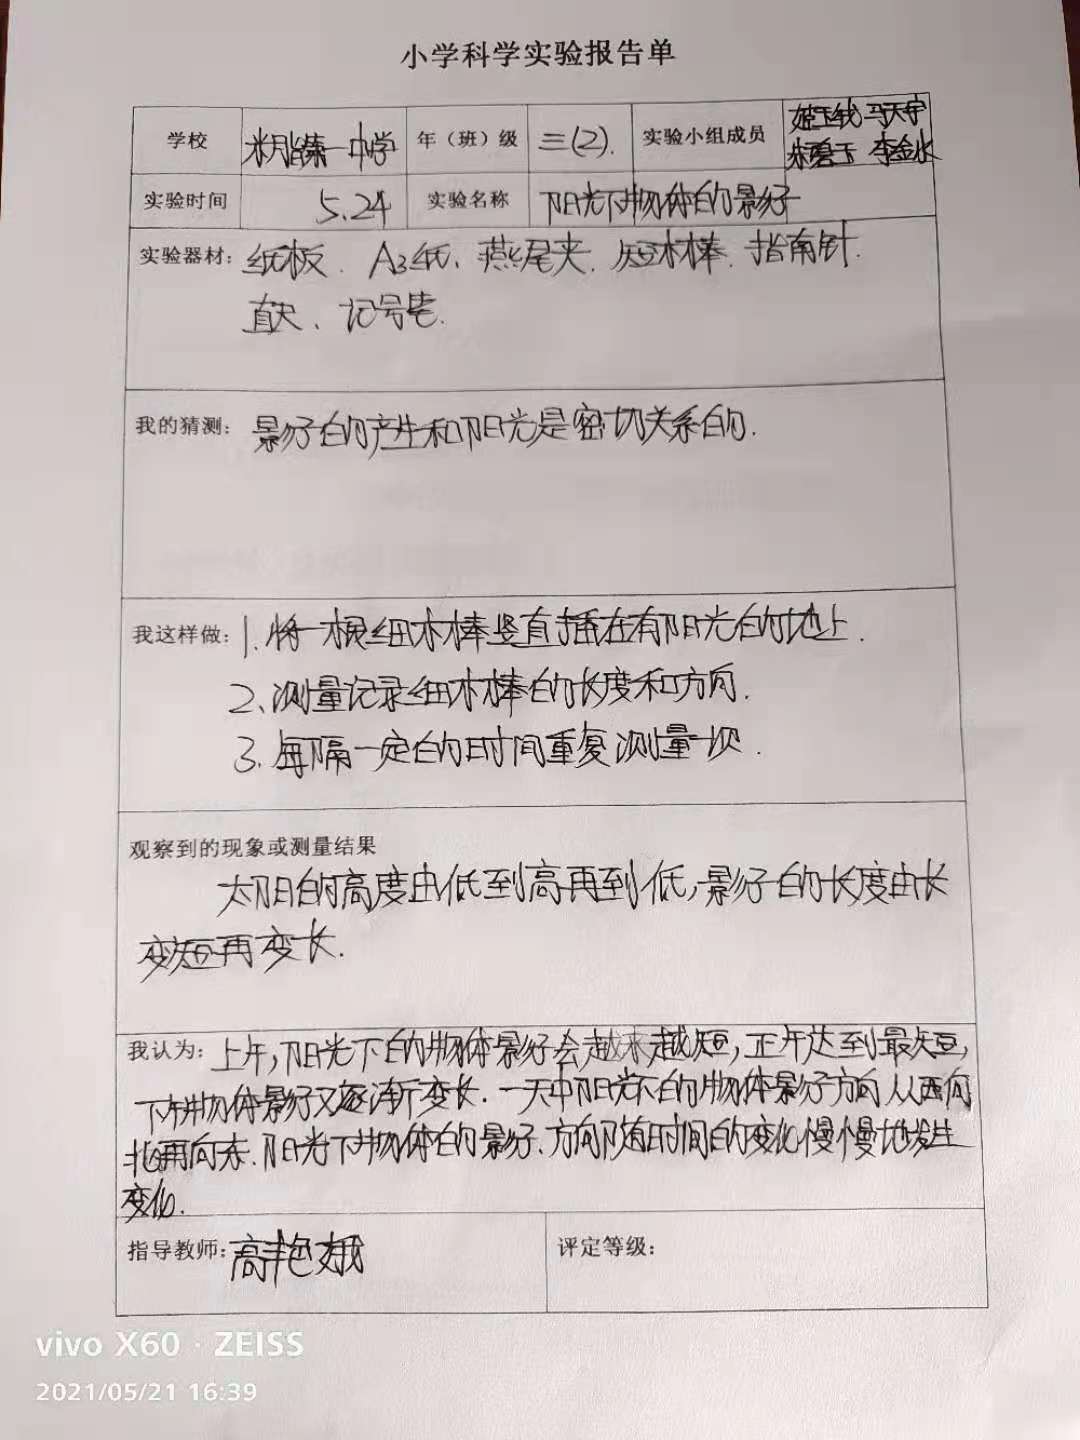 小学科学实验报告单
学校 米脂第一中学 年（班）级 三(2). 实验小组成员 马天宇
朱碧玉 李金水
实验时间 5.24 实验名称 阳光下物体的影子
实验器材: 纸板、A3纸、燕尾夹、短木棒、指南针.
直尺、记号笔.
我的猜测: 影子的产生和阳光是密切关系的.
我这样做: 1.将一根细木棒竖直插在有阳光的地上.
2、测量记录细木棒的长度和方向.
3.每隔一定的时间重复测量一次.
观察到的现象或测量结果
太阳的高度由低到高再到低,影子的长度由长
变短再变长.
我认为: 上午,阳光下的物体影子会越来越短,正午达到最短,
下午物体影子又逐渐变长.一天中阳光下的物体影子方向从西向
北再向东.阳光下物体的影子.方向随时间的变化慢慢地发生
变化.
指导教师: 高艳娥 评定等级:
vivo X60 · ZEISS
2021/05/21 16:39